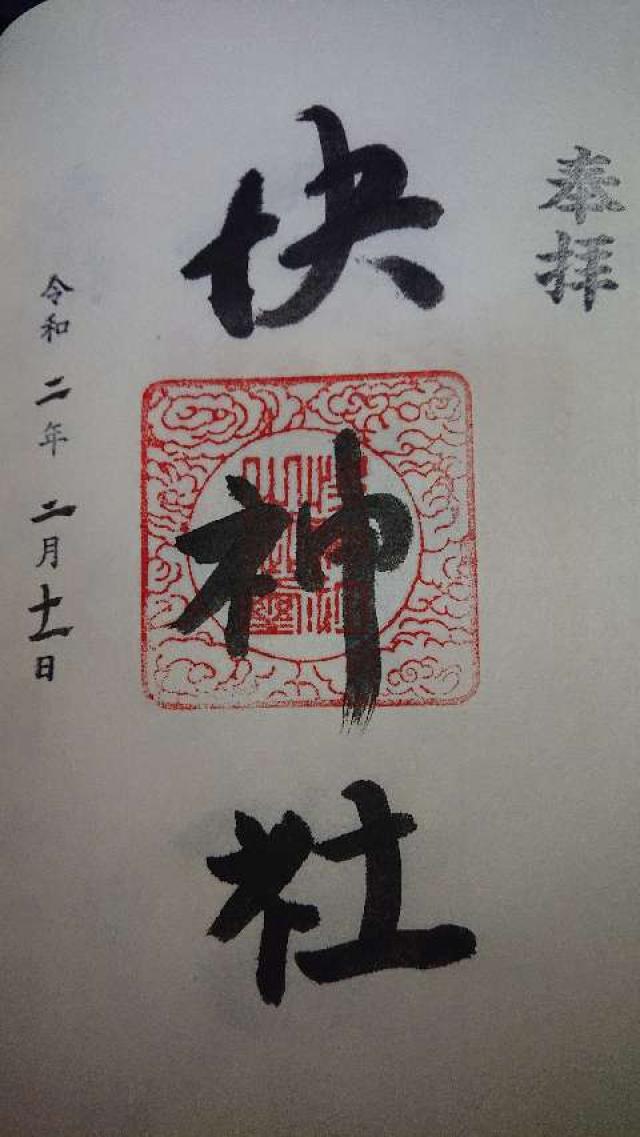 奉拝
快神社
令和二年二月十一日